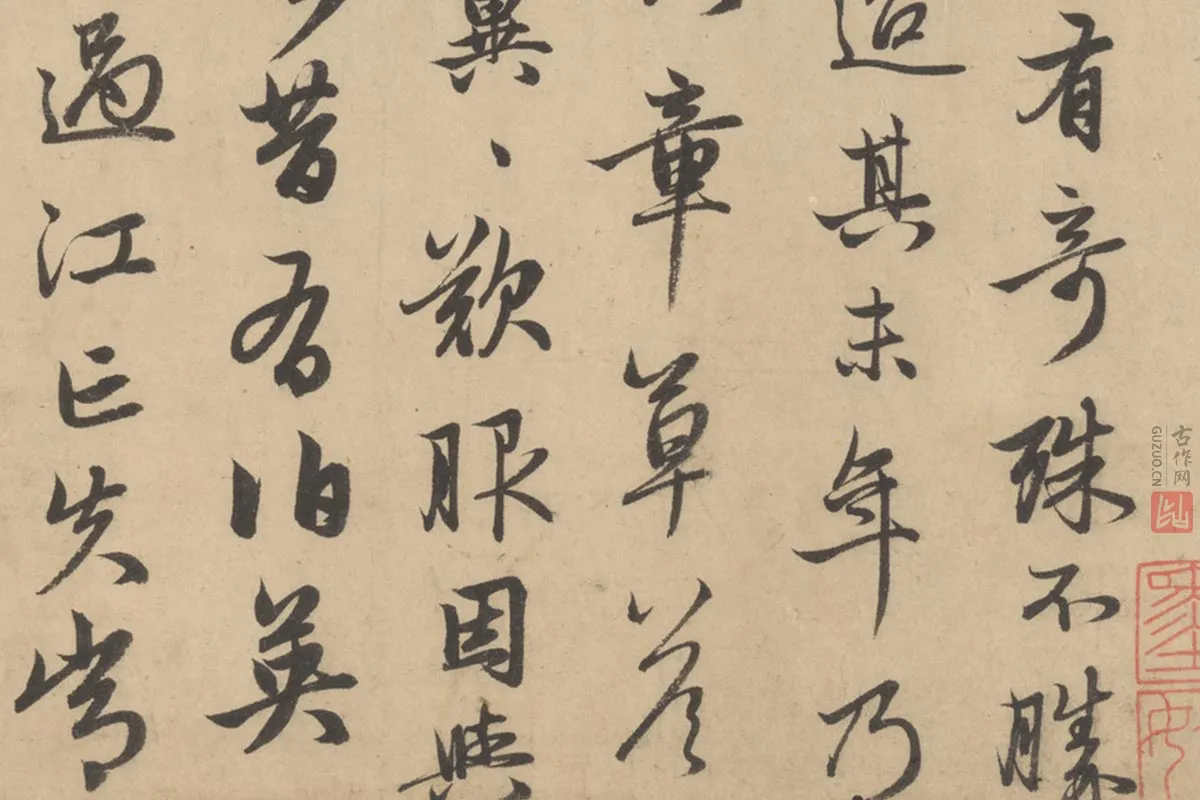 有奇殊不勝
迨其末年乃
章草答
翼、歎服因與
昔有伯英
過江亡失常
古作网
GUZUO.CN